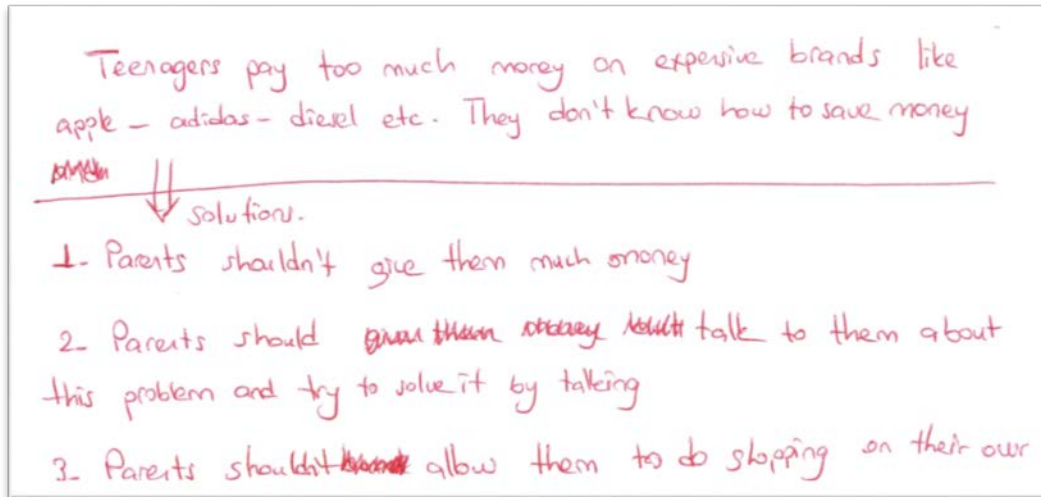 Teenagers pay too much money on expensive brands like
apple - adidas - diesel etc. They don't know how to save money
solutions.
1- Parents shouldn't give them much money
2- Parents should talk to them about
this problem and try to solve it by talking
3- Parents shouldn't allow them to do shopping on their own